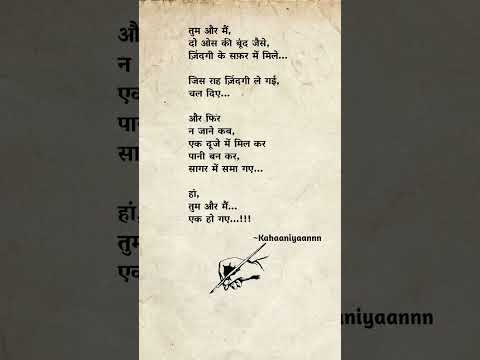 तुम और मैं,
दो ओस की बूंद जैसे,
ज़िंदगी के सफ़र में मिले...
जिस राह ज़िंदगी ले गई,
चल दिए...
और फिर
न जाने कब,
एक दूजे में मिल कर
पानी बन कर,
सागर में समा गए...
हां,
तुम और मैं...
एक हो गए...!!!
~Kahaaniyaannn